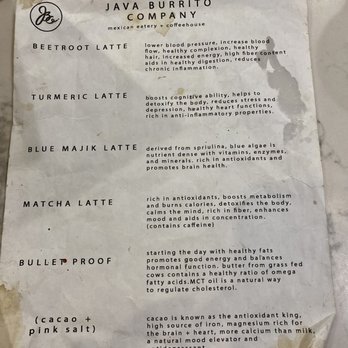 JAVA BURRITO
COMPANY
mexican eatery + coffeehouse
BEETROOT LATTE
lower blood pressure, increase blood
flow, healthy complexion, healthy
hair, increased energy, high fiber content
aids in healthy digestion, reduces
chronic inflammation.
TURMERIC LATTE
boosts cognative ability, helps to
detoxify the body, reduces stress and
depression, healthy heart functions,
rich in anti-inflammatory properties.
BLUE MAJIK LATTE
derived from spriulina, blue algae is
nutrient dense with vitamins, enzymes,
and minerals. rich in antioxidants and
promotes brain health.
MATCHA LATTE
rich in antioxidants, boosts metabolism
and burns calories, detoxifies the body,
calms the mind, rich in fiber, enhances
mood and aids in concentration.
(contains caffeine)
BULLET PROOF
starting the day with healthy fats
promotes good energy and balances
hormonal function. butter from grass fed
cows contains a healthy ratio of omega
fatty acids.MCT oil is a natural way
to regulate cholesterol.
(cacao +
pink salt)
cacao is known as the antioxidant king,
high source of iron, magnesium rich for
the brain + heart, more calcium than milk,
a natural mood elevator and